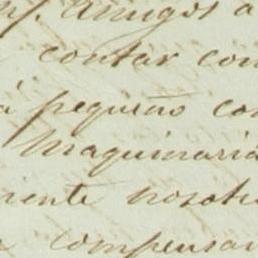 Amigos a
contar con
á pequeño co
Maquinaria
mente nosotr
compensar